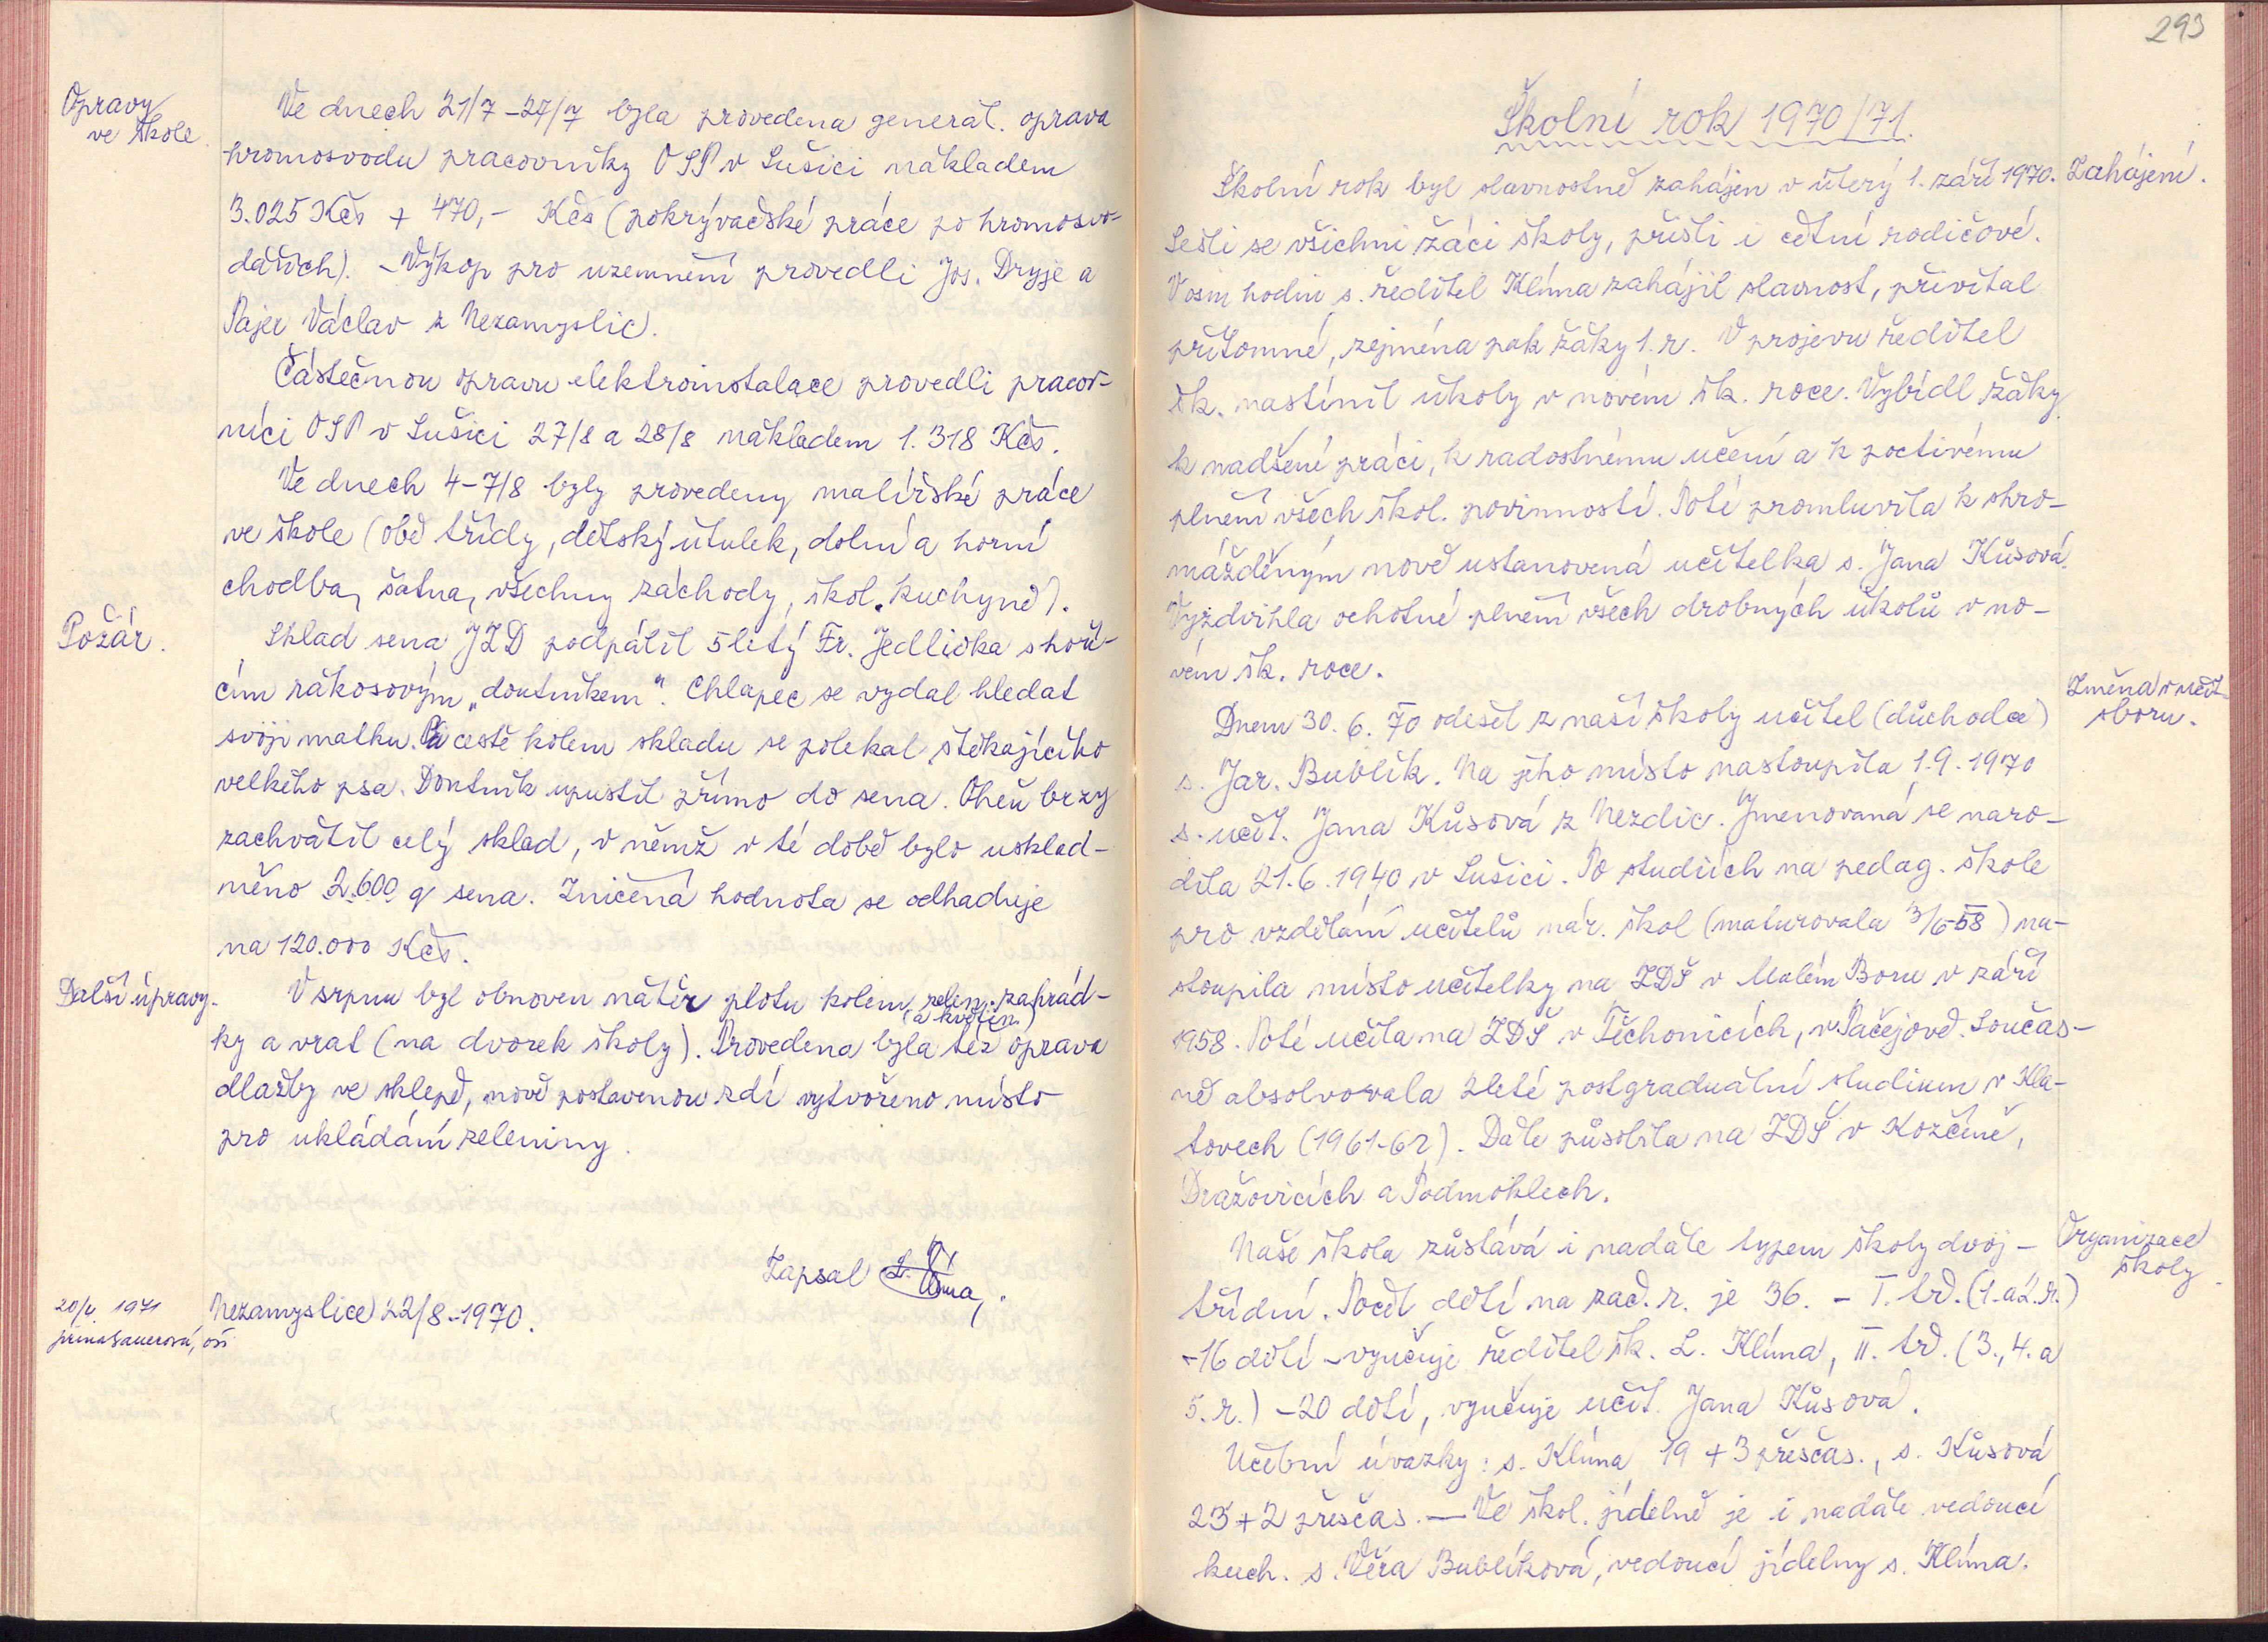 Opravy
ve škole
Ve dnech 21/7 - 27/7 byla provedena generál. oprava
hromosvodu pracovníky OSP v Sušici nákladem
3.025 Kčs + 470,- Kčs (pokrývačské práce po hromosvo-
dářích). - Výkop pro uzemnění provedli Jos. Dryje a
Pajer Václav z Nezamyslic.
Částečnou opravu elektroinstalace provedli pracov-
níci OSP v Sušici 27/8 a 28/8 nákladem 1.318 Kčs.
Ve dnech 4-7/8 byly provedeny malířské práce
ve škole (obě třídy, dětský útulek, dolní a horní
chodba, šatna, všechny záchody, škol. kuchyně).
Požár.
Sklad sena JZD podpálil 5letý Fr. Jedlička s hoří-
cím rákosovým „doutníkem". Chlapec se vydal hledat
svoji matku. Po cestě kolem skladu se polekal štěkajícího
velkého psa. Doutník upustil přímo do sena. Oheň brzy
zachvátil celý sklad, v němž v té době bylo usklad-
něno 2.600 q sena. Zničená hodnota se odhaduje
na 120.000 Kčs.
Další úpravy.
V srpnu byl obnoven nátěr plotu kolem zelen. zahrád-
(a květin.)
ky a vrat (na dvorek školy). Provedena byla též oprava
dlažby ve sklepě, nově postavenou zdí vytvořeno místo
pro ukládání zeleniny.
Zapsal L. Klíma,
Nezamyslice 22/8-1970.
20/4 1971
293
Školní rok 1970/71.
Zahájení.
Školní rok byl slavnostně zahájen v úterý 1. září 1970.
Sešli se všichni žáci školy, přišli i četní rodičové.
V osm hodin s. ředitel Klíma zahájil slavnost, přivítal
přítomné, zejména pak žáky 1. r. V projevu ředitel
šk. nastínil úkoly v novém šk. roce. Vybídl žáky
k nadšené práci, k radostnému učení a k poctivému
plnění všech škol. povinností. Poté promluvila k shro-
mážděným nově ustanovená učitelka s. Jana Kůsová.
Vyzdvihla ochotné plnění všech drobných úkolů v no-
vém šk. roce.
Změna v učit.
sboru.
Dnem 30. 6. 70 odešel z naší školy učitel (důchodce)
s. Jar. Bublík. Na jeho místo nastoupila 1.9.1970
s. učit. Jana Kůsová z Nezdic. Jmenovaná se naro-
dila 21.6.1940 v Sušici. Po studiích na pedag. škole
pro vzdělání učitelů nár. škol (maturovala 3/6-58) na-
stoupila místo učitelky na ZDŠ v Malém Boru v září
1958. Poté učila na ZDŠ v Těchonicích, v Pačejově. Součas-
ně absolvovala 2leté postgraduální studium v Kla-
tovech (1961-62). Dále působila na ZDŠ v Kozčíně,
Dražovicích a Podmoklech.
Organizace
školy.
Naše škola zůstává i nadále typem školy dvoj-
třídní. Počet dětí na zač. r. je 36. - I. tř. (1. a 2. r.)
- 16 dětí - vyučuje ředitel šk. L. Klíma, II. tř. (3., 4. a
5. r.) - 20 dětí, vyučuje učit. Jana Kůsová.
Učební úvazky: s. Klíma 19 + 3 přesčas., s. Kůsová
23 + 2 přesčas. — Ve škol. jídelně je i nadále vedoucí
kuch. s. Věra Bublíková, vedoucí jídelny s. Klíma.